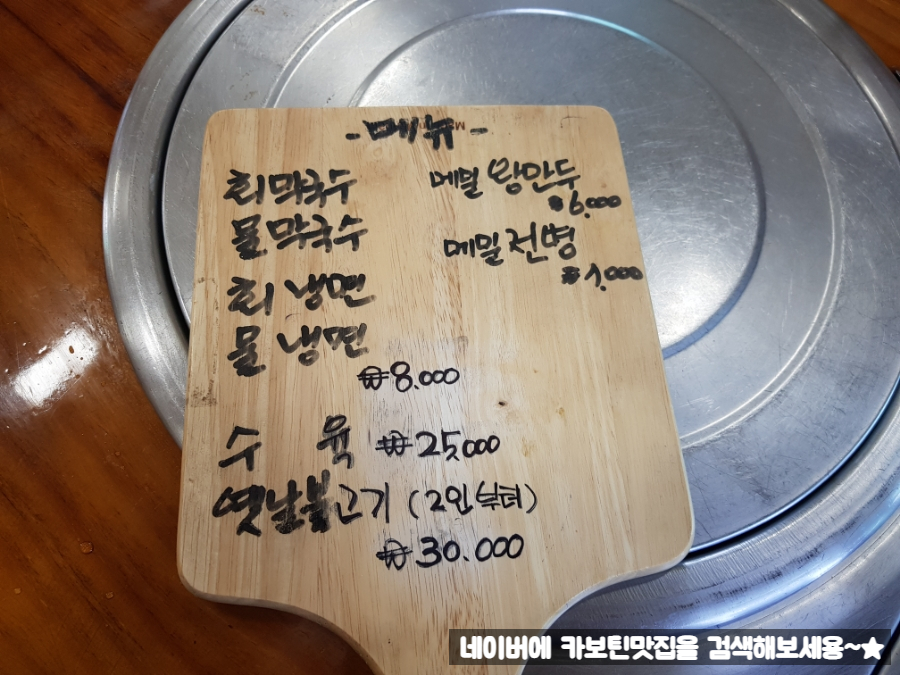 -메뉴-
회막국수
물막국수
회 냉면
물 냉면
₩8.000
수 육 ₩25,000
옛날불고기 (2인부터)
₩30.000
메밀 왕만두
₩6,000
메밀전병
네이버에 카보틴맛집을 검색해보세용~★